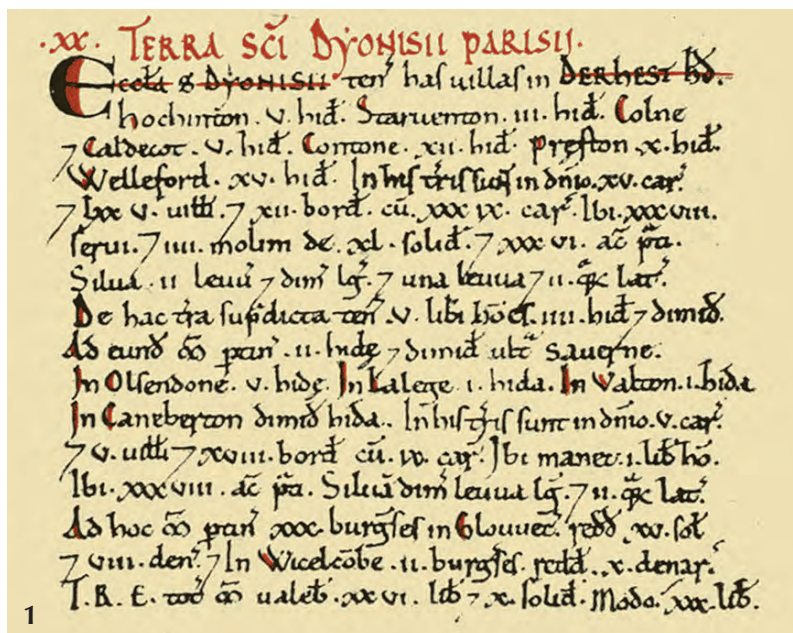 .XX. TERRA SC̃I DYONISII PARISII.
Eccła S DYONISII teñ has uillas in DERHEST HD̃.
hochinton . v. hid̃. Staruenton . iii. hid̃. Colne
⁊ Caldecot . v. hid̃. Contone . xii. hid̃. Preston .x. hid̃.
Welleford . xv. hid̃. In his tr̃is sunt in dñio .xv. car̃.
⁊ lxx v. uiłłi ⁊ xii. bord̃. cũ. xxx ix. car̃. Ibi. xxxviii.
serui. ⁊ iiii. molini de .xl. solid̃. ⁊ xxx vi. ac̃ p̃ti.
Silua . ii leuu᷒ ⁊ dim̃ lg̃. ⁊ una leuua ⁊ ii. q̃k lat᷒.
De hac tr̃a sup̃dicta teñ .v. lib̃i hões .iiii. hid̃ ⁊ dimid̃.
Ad eund̃ m̃ ptiñ . ii. hidę ⁊ dimid̃ ult̃ Sauerne.
In Olsendone . v. hidę. In Lalege .i. hida. In Valton .i. hida
In Caneberton dimid̃ hida. In his tr̃is sunt in dñio .v. car̃.
⁊ v. uiłłi ⁊ xviii. bord̃ cũ. ix. car̃. Ibi manet .i. lib̃ hõ.
Ibi . xxxviii . ac̃ p̃ti. Siluã dim̃ leuua lg̃. ⁊ ii. q̃k lat᷒.
Ad hoc m̃ ptiñ xxx. burg̃ses in Glouuec̃. redd̃ xv. sol̃
⁊ viii. deñ. ⁊ In Wicelcõbe .ii. burg̃ses. redd̃. x. denar̃.
T.R.E. tot̃ m̃ ualeb̃ . xx vi. lib̃ ⁊ x. solid̃. Modo . xxx. lib̃.
1